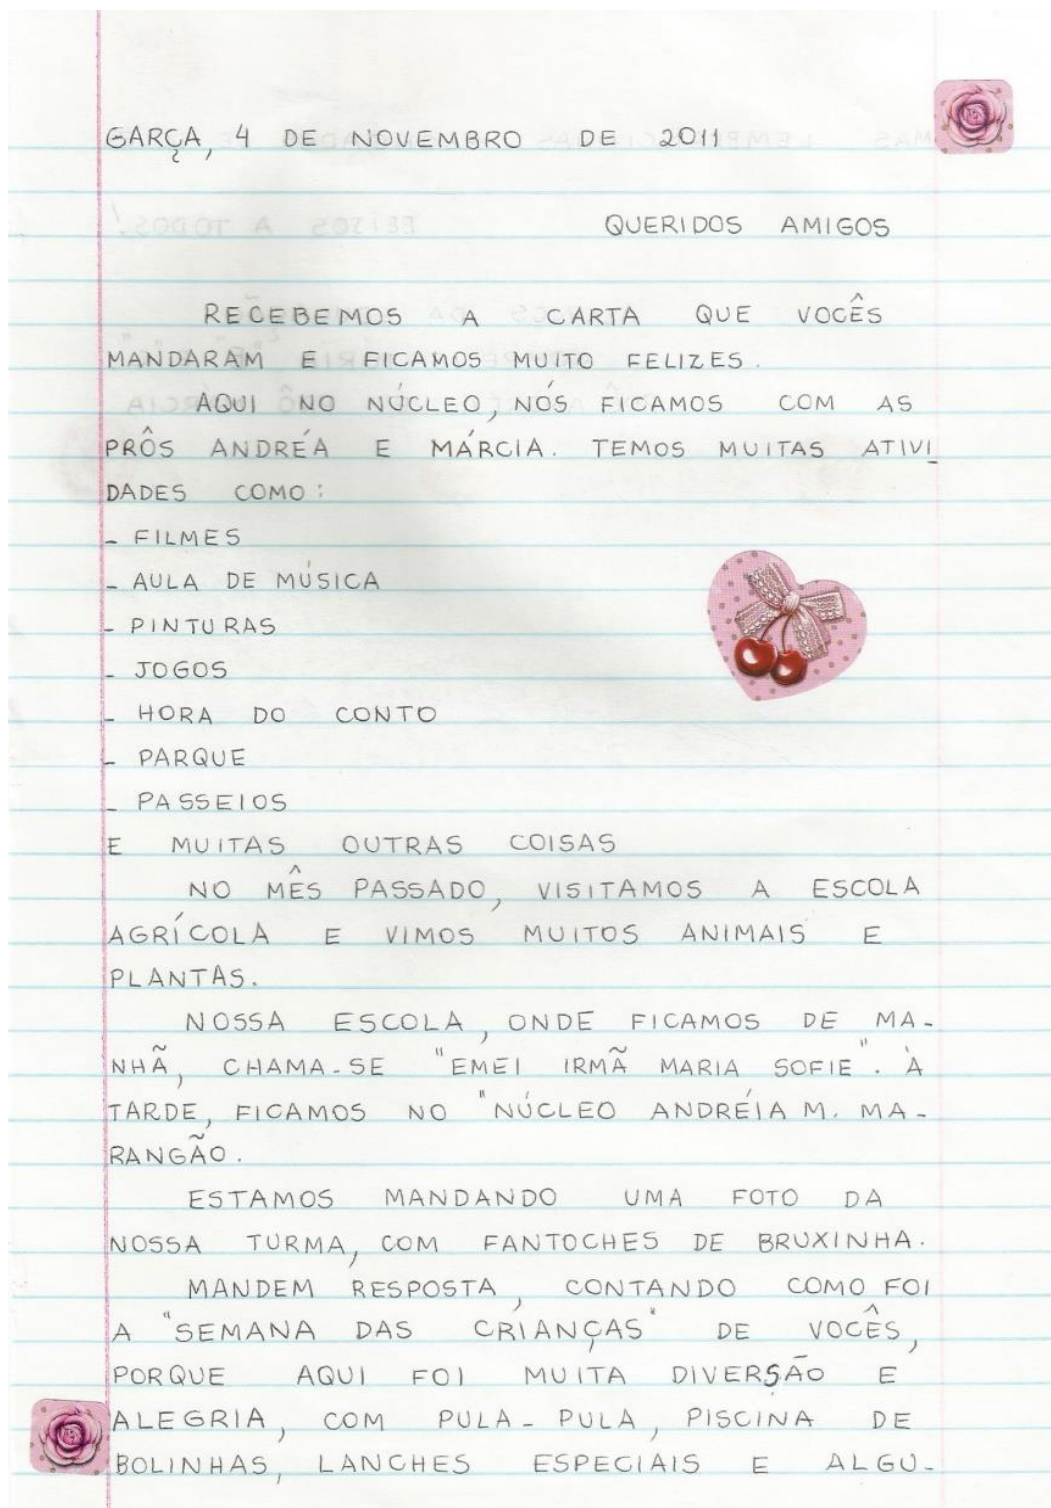 GARÇA, 4 DE NOVEMBRO DE 2011
QUERIDOS AMIGOS
RECEBEMOS A CARTA QUE VOCÊS
MANDARAM E FICAMOS MUITO FELIZES.
AQUI NO NÚCLEO, NÓS FICAMOS COM AS
PRÔS ANDRÉA E MÁRCIA. TEMOS MUITAS ATIVI_
DADES COMO:
- FILMES
- AULA DE MÚSICA
- PINTURAS
- JOGOS
- HORA DO CONTO
- PARQUE
- PASSEIOS
E MUITAS OUTRAS COISAS
NO MÊS PASSADO, VISITAMOS A ESCOLA
AGRÍCOLA E VIMOS MUITOS ANIMAIS E
PLANTAS.
NOSSA ESCOLA, ONDE FICAMOS DE MA-
NHÃ, CHAMA-SE "EMEI IRMÃ MARIA SOFIE". À
TARDE, FICAMOS NO "NÚCLEO ANDRÉIA M. MA-
RANGÃO.
ESTAMOS MANDANDO UMA FOTO DA
NOSSA TURMA, COM FANTOCHES DE BRUXINHA.
MANDEM RESPOSTA, CONTANDO COMO FOI
A "SEMANA DAS CRIANÇAS" DE VOCÊS,
PORQUE AQUI FOI MUITA DIVERSÃO E
ALEGRIA, COM PULA-PULA, PISCINA DE
BOLINHAS, LANCHES ESPECIAIS E ALGU-